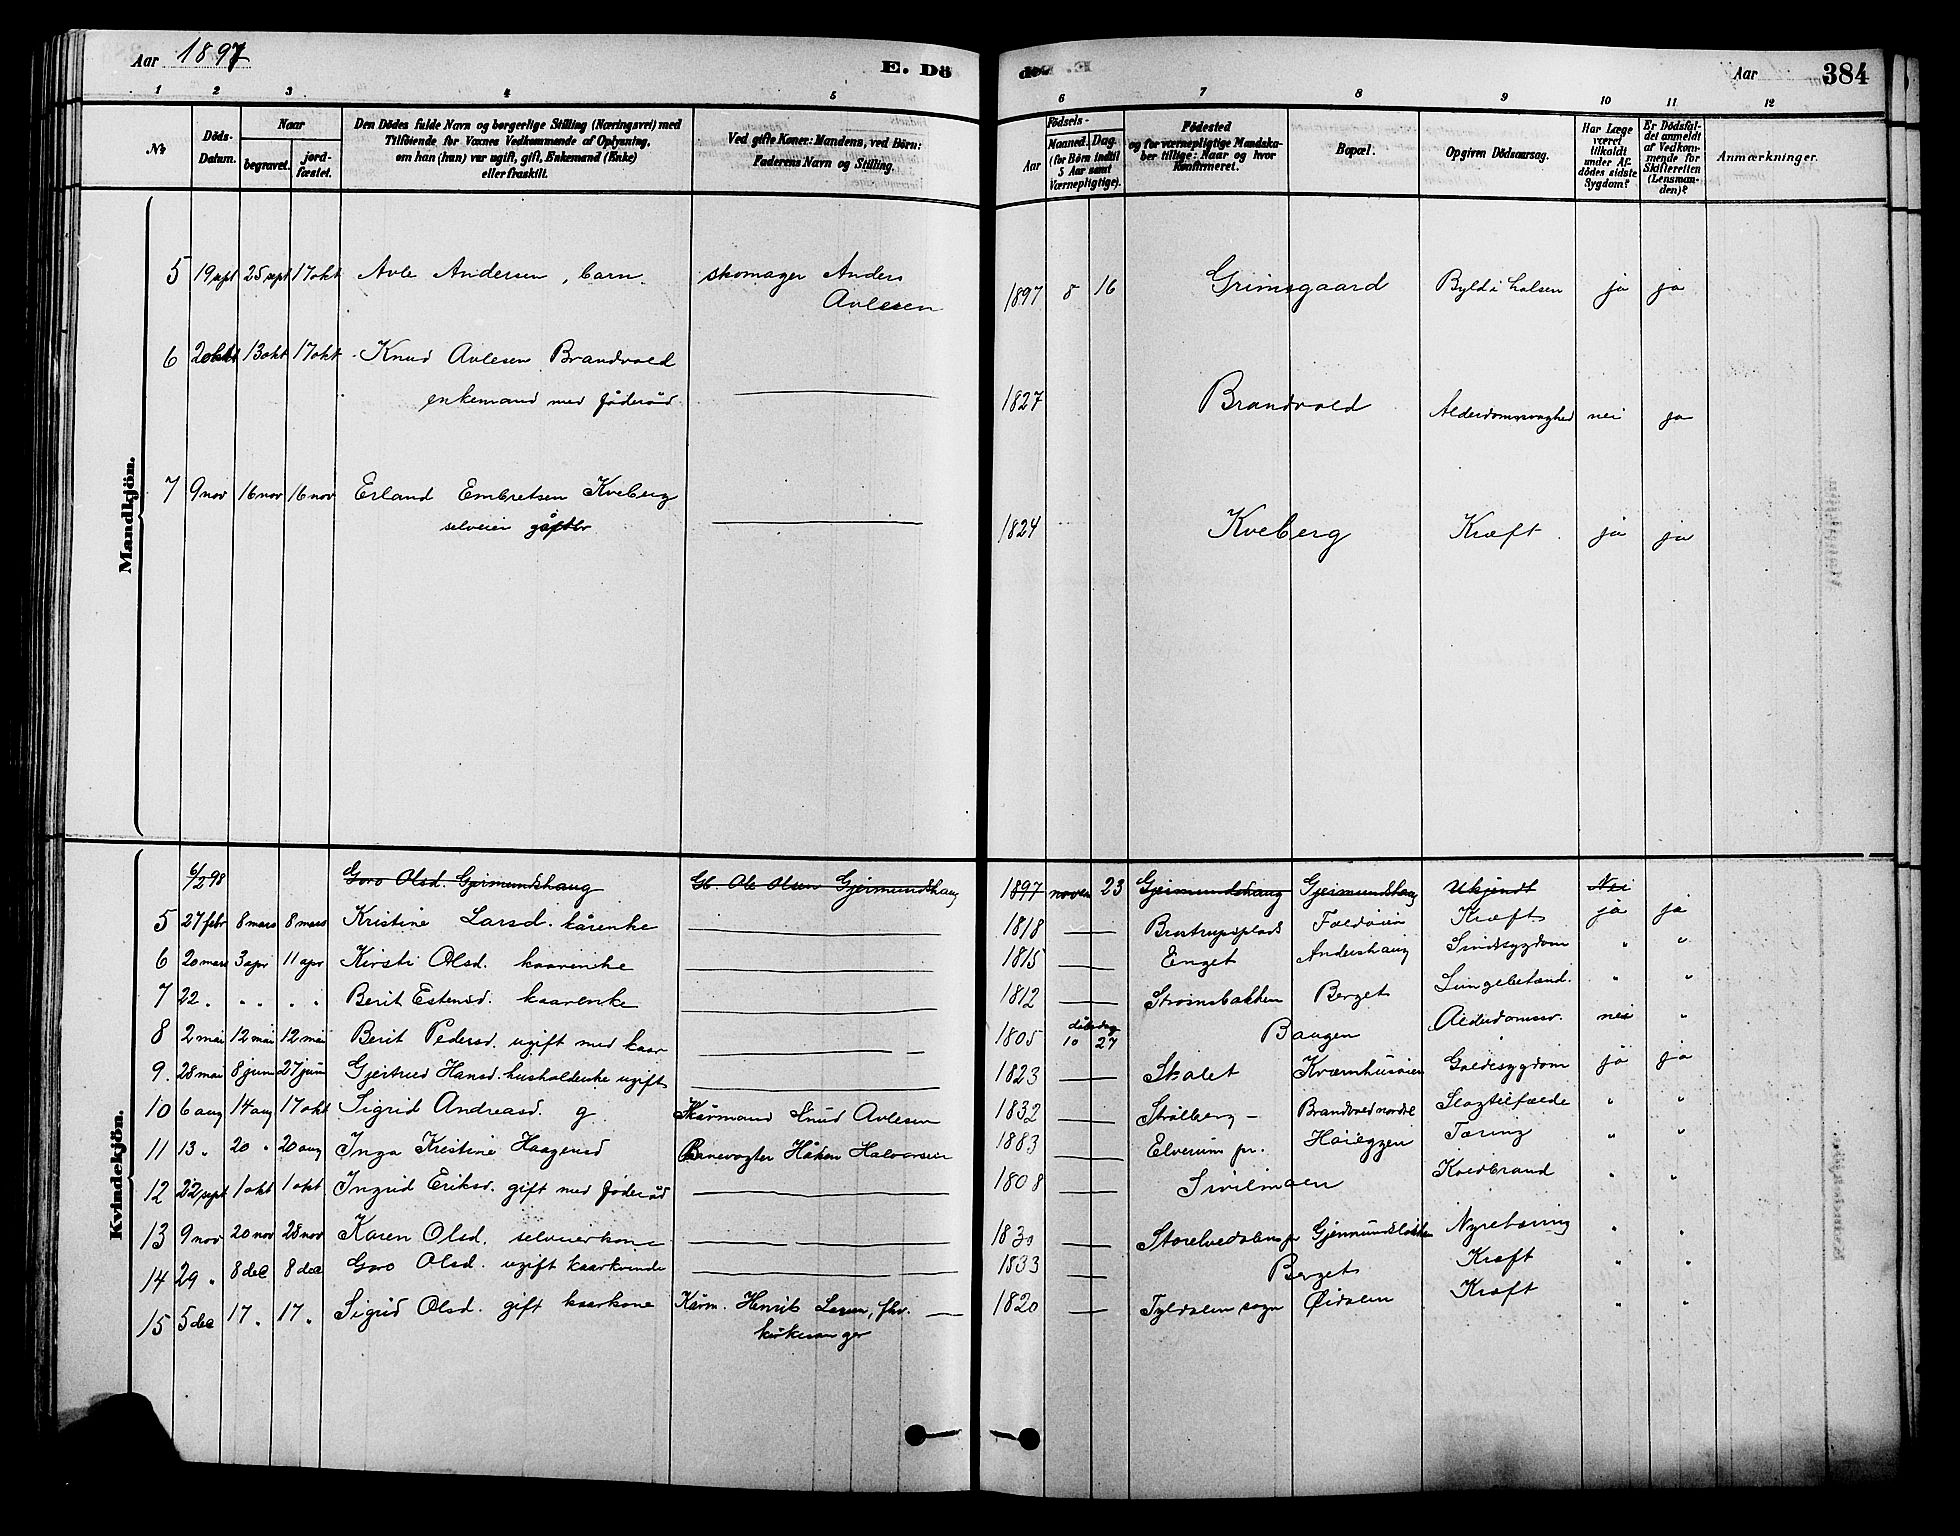 Aar 1897
E. Dö
de.
Aar
384
1 2 3 4 5 6 7 8 9 10 11 12
No
Döds-Datum.
Naar
begravet.
jord-fæstet.
Den Dödes fulde Navn og borgerlige Stilling (Næringsvei) med
Tilföiende for Voxnes Vedkommende af Oplysning,
om han (hun) var ugift, gift, Enkemand (Enke)
eller fraskilt.
Ved gifte Koner: Mandens, ved Börn:
Faderens Navn og Stilling.
Födsels-
Aar
Maaned. Dag.
(for Börn indtil
5 Aar samt
Værnepligtige).
Födested
og for værnepligtige Mandska-
ber tillige: Naar og hvor
Konfirmeret.
Bopæl.
Opgiven Dödsaarsag.
Har Læge
været
tilkaldt
under Af-
dödes sidste
Sygdom?
Er Dödsfal-
det anmeldt
af Vedkom-
mende for
Skifteretten
(Lensman-
den)?
Anmærkninger.
Mandkjön.
5 19 sept 25 sept 17 okt Avle Andersen, barn. skomager Anders 1897 8 16 Grimsgaard Byld i halsen ja ja
Avlesen
6 2 okt 13 okt 17 okt Knud Avlesen Brandvold
enkemand med föderåd 1827 Brandvold Alderdomssvaghed nei ja
7 9 nov 16 nov 16 nov Erland Embretsen Kveberg
selveier 1824 Kveberg Kræft ja ja
Kvindekjön.
6/2 98 Goro Olsd. Gjermundshaug Gb. Ole Olsen Gjermundshaug 1897 novem 23 Gjermundshaug Gjermundshaug Ukjendt Nei
5 27 febr 8 mars 8 mars Kristine Larsd. kårenke 1818 Brostrupsplads Foldöien Kræft ja ja
6 20 mars 3 apr 11 apr Kirsti Olsd. kaarenke 1815 Enget Andershaug Sindssygdom " "
7 22 " " " " " Berit Estensd. kaarenke 1812 Strömsbakken Berget Lungebetænd. " "
8 2 mai 12 mai 12 mai Berit Pedersd. ugift med kaar 1805 dåbsdag 10 27 Baugen Alderdomssv. nei "
9. 28 mai 8 juni 27 juni Gjertrud Hansd. husholderske ugift 1823 Skalet Kværnhusöien Galdesygdom ja ja
10 6 aug 14 aug 17 okt Sigrid Andreasd. g Kårmand Knud Avlesen 1832 Strålberg - Brandvold nordre Slagtilfælde " "
11 13 " 20 " 20 aug Inga Kristine Haagensd Banevogter Håken Halvorsen 1883 Elverum pr. Höieggen Tæring " "
12 22 sept 1 okt 1 okt Ingrid Eriksd. gift med föderåd 1808 Sivilmoen Koldbrand " "
13 9 nov 20 nov 28 nov Karen Olsd. selveierkone 1830 Storelvedalens pr Gjermundslökken Nyretæring " "
14 29 " 8 dec 8 dec Goro Olsd. ugift kaarkvinde 1833 Berget Kræft " "
15 5 dec 17 " 17 " Sigrid Olsd. gift kaarkone Kårm. Henrik Larsen, fhv. 1820 Tyldalen sogn Öidalen Kræft " "
kirkesanger